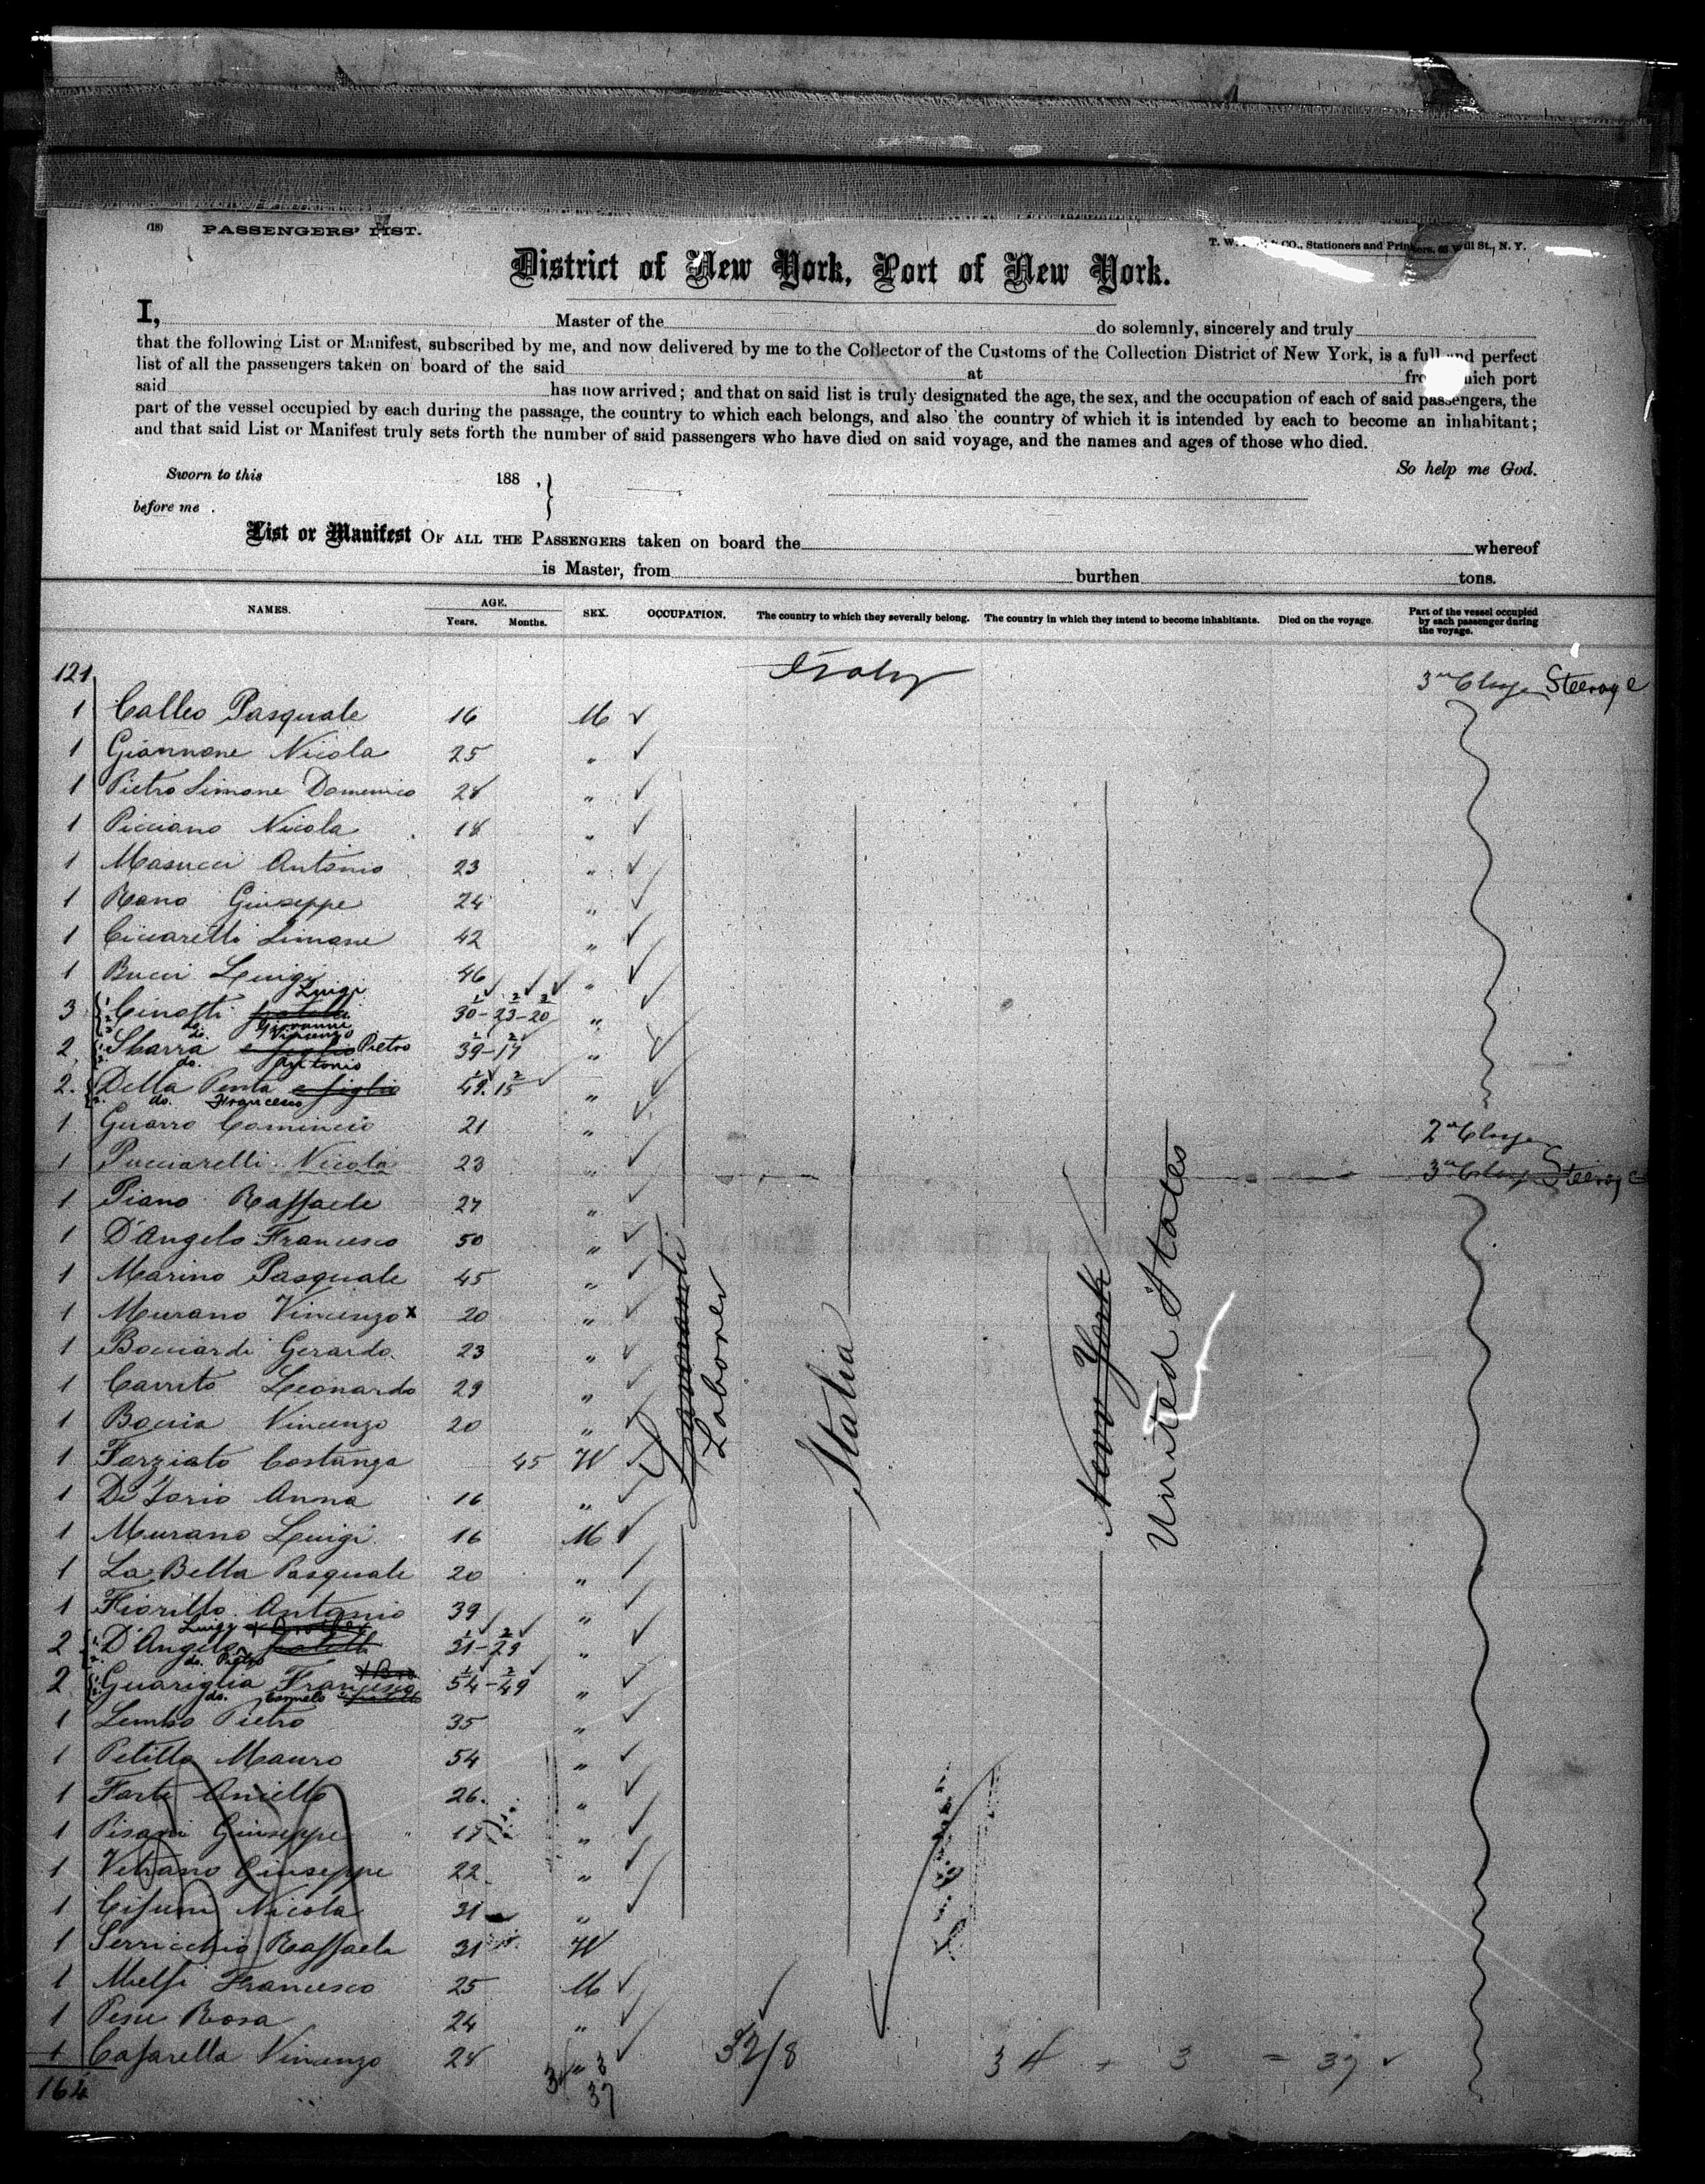 (18) PASSENGERS' LIST.
T. W. & CO., Stationers and Printers, St., N. Y.
District of New York, Port of New York.
I, Master of the do solemnly, sincerely and truly
that the following List or Manifest, subscribed by me, and now delivered by me to the Collector of the Customs of the Collection District of New York, is a full and perfect
list of all the passengers taken on board of the said at from which port
said has now arrived; and that on said list is truly designated the age, the sex, and the occupation of each of said passengers, the
part of the vessel occupied by each during the passage, the country to which each belongs, and also the country of which it is intended by each to become an inhabitant;
and that said List or Manifest truly sets forth the number of said passengers who have died on said voyage, and the names and ages of those who died.
So help me God.
Sworn to this 188 , }
before me .
List or Manifest OF ALL THE PASSENGERS taken on board the whereof
is Master, from burthen tons.
NAMES. AGE. Years. Months. SEX. OCCUPATION. The country to which they severally belong. The country in which they intend to become inhabitants. Died on the voyage. Part of the vessel occupied by each passenger during the voyage.
121 Italy Steerage
1 Calleo Pasquale 16 M ✓
1 Giannone Nicola 25 " ✓
1 Pietro Simone Domenico 28 " ✓
1 Picciano Nicola 18 " ✓
1 Masucci Antonio 23 " ✓
1 Rano Giuseppe 24 " ✓
1 Ciccarelli Simone 42 " ✓
1 Bucci Luigi 46 " ✓
Luigi
3 Cinotti fratelli 30-23-20 " ✓
do. Giovanni
do. Vincenzo
2 Sbarra e figlio Pietro 39-17 " ✓
do. Antonio
2. Della Penta e figlio 49.15 " ✓
do. Francesco
1 Guarro Comincio 21 " 2a Classe
1 Pucciarelli Nicola 23 " ✓ 3a Classe Steerage
1 Piano Raffaele 27 " ✓
1 D'Angelo Francesco 50 " ✓
1 Marino Pasquale 45 " ✓
1 Murano Vincenzo x 20 " ✓
1 Bocciardi Gerardo 23 " ✓
1 Carrito Leonardo 29 " ✓
1 Boccia Vincenzo 20 " ✓
1 Forziato Costanza 45 W ✓
1 Di Iorio Anna 16 " ✓
1 Murano Luigi 16 M ✓
1 La Bella Pasquale 20 " ✓
1 Fiorillo Antonio 39 " ✓
Luigi + Brother
2 D'Angelo fratelli 31-29 " ✓
do. Pietro
+ Bro.
2 Guariglia Francesco 54-49 " ✓
do. Carmelo e fratello
1 Lembo Pietro 35 " ✓
1 Petillo Mauro 54 " ✓
1 Forte Aniello 26 " ✓
1 Pisani Giuseppe 17 " ✓
1 Vetrano Giuseppe 22 " ✓
1 Cifuni Nicola 31 " ✓
1 Serricchio Raffaela 31 W
1 Melfi Francesco 25 M ✓
1 Pesce Rosa 24 " ✓
1 Cafarella Vincenzo 28 " ✓
164
Laborer
Italia
New York
United States
3
37
32/8
34 + 3 = 37 ✓